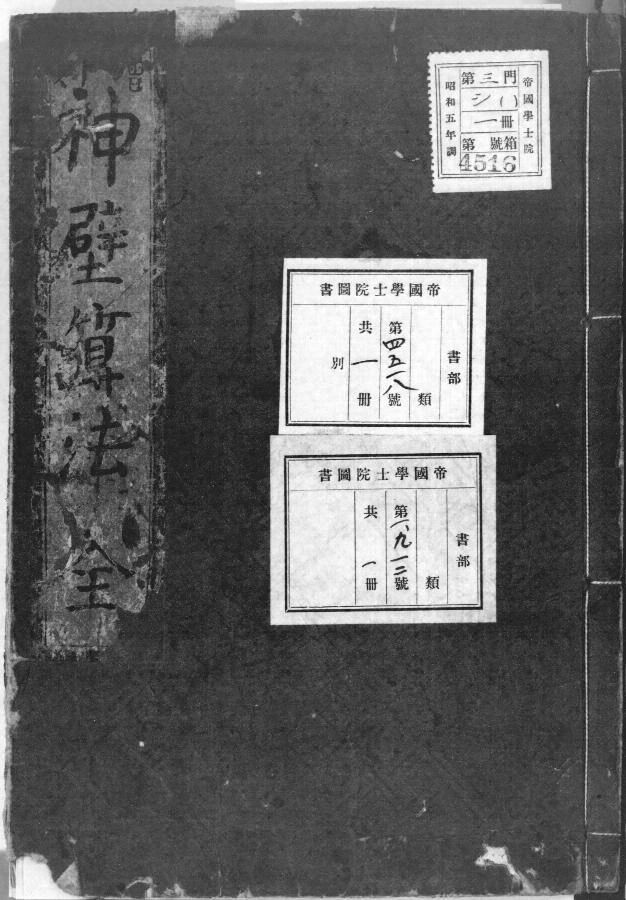 神壁算法 全
帝國學士院
第三門
シ( )
一冊
第 號箱
4516
昭和五年調
帝國學士院圖書
書部
類
第四五一八號
共一冊
別
帝國學士院圖書
書部
類
第一、九一二號
共一冊